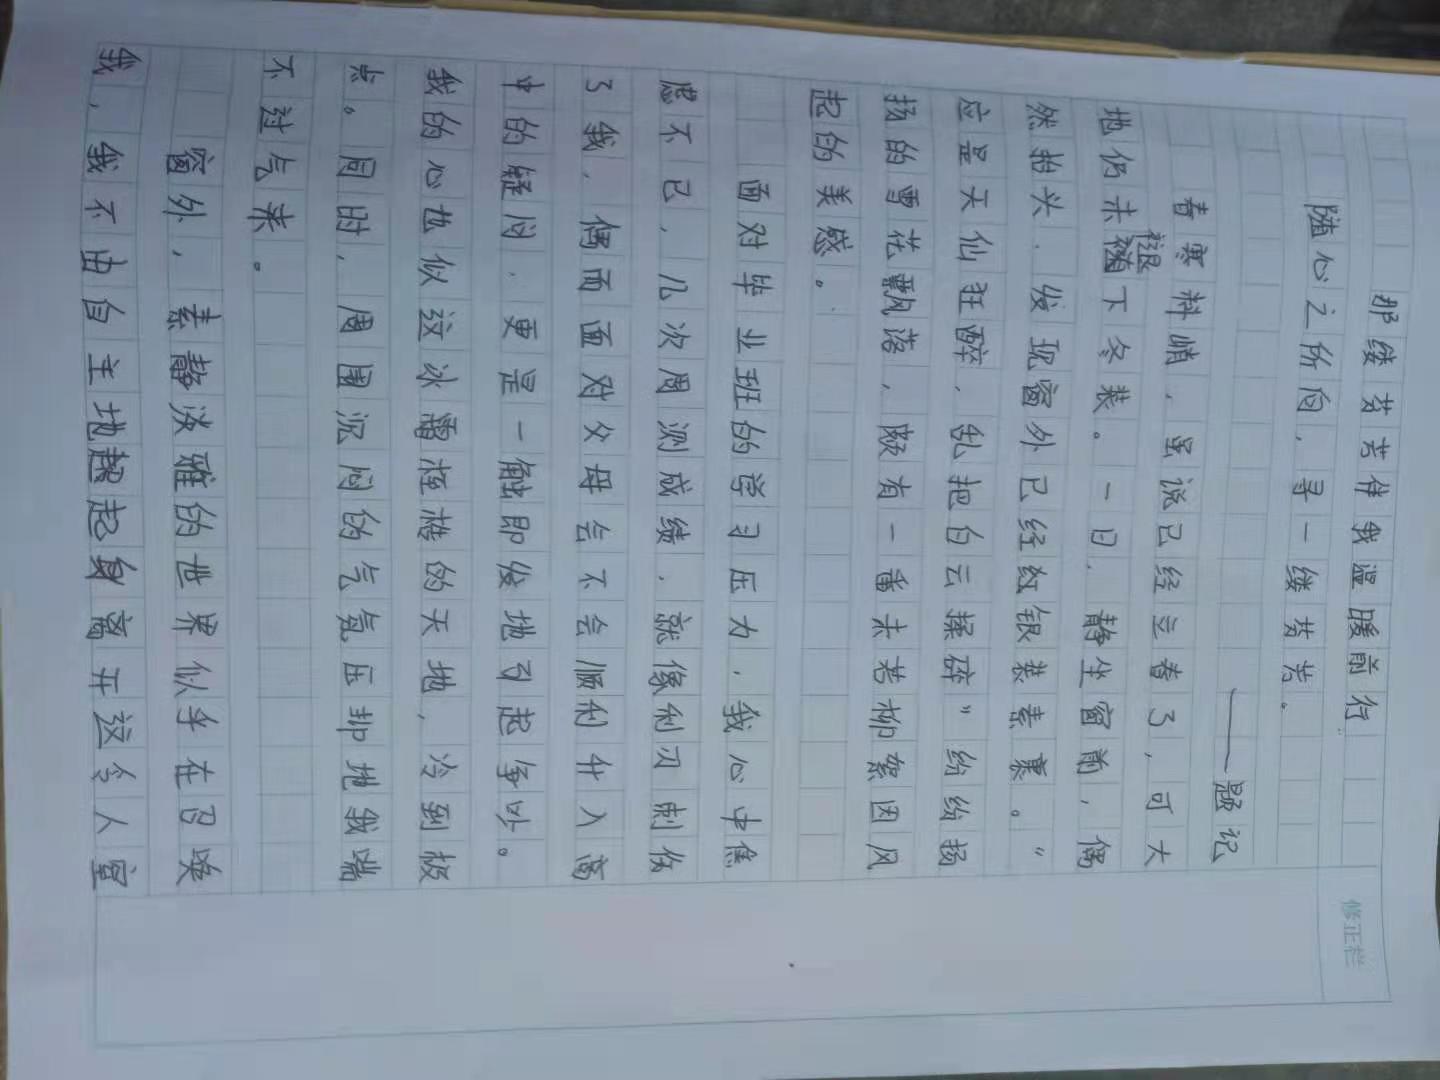 那缕芬芳伴我温暖前行
随心之所向，寻一缕芬芳。
——题记
春寒料峭，虽说已经立春了，可大
地仍未褪下冬装。一日，静坐窗前，偶
然抬头，发现窗外已经红银装素裹。“
应是天仙狂醉，乱把白云揉碎”纷纷扬
扬的雪花飘落，颇有一番未若柳絮因风
起的美感。
面对毕业班的学习压力，我心中焦
虑不已，几次周测成绩，就像利刃刺伤
了我，偶而面对父母会不会顺利升入高
中的疑问，更是一触即发地引起争吵。
我的心也似这冰霜桎梏的天地，冷到极
点。同时，周围沉闷的气氛压抑地我喘
不过气来。
窗外，素静淡雅的世界似乎在召唤
我，我不由自主地起身离开这令人窒
修正栏